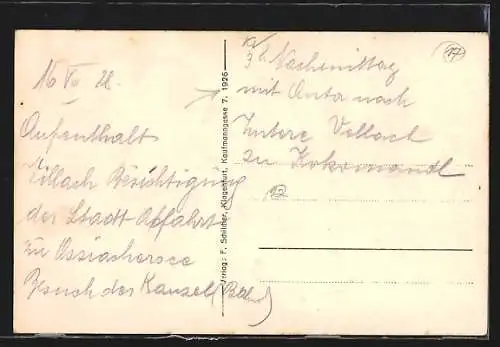 16 VII 28.
Aufenthalt
Villach Besichtigung
der Stadt Abfahrt
zu Ossiachersee
Besuch der Kanzel (Bahn)
Verlag: F. Schildner, Klagenfurt, Kaufmanngasse 7. 1926
Nachmittag
mit Auto nach
Untere Vellach
zu
17
12